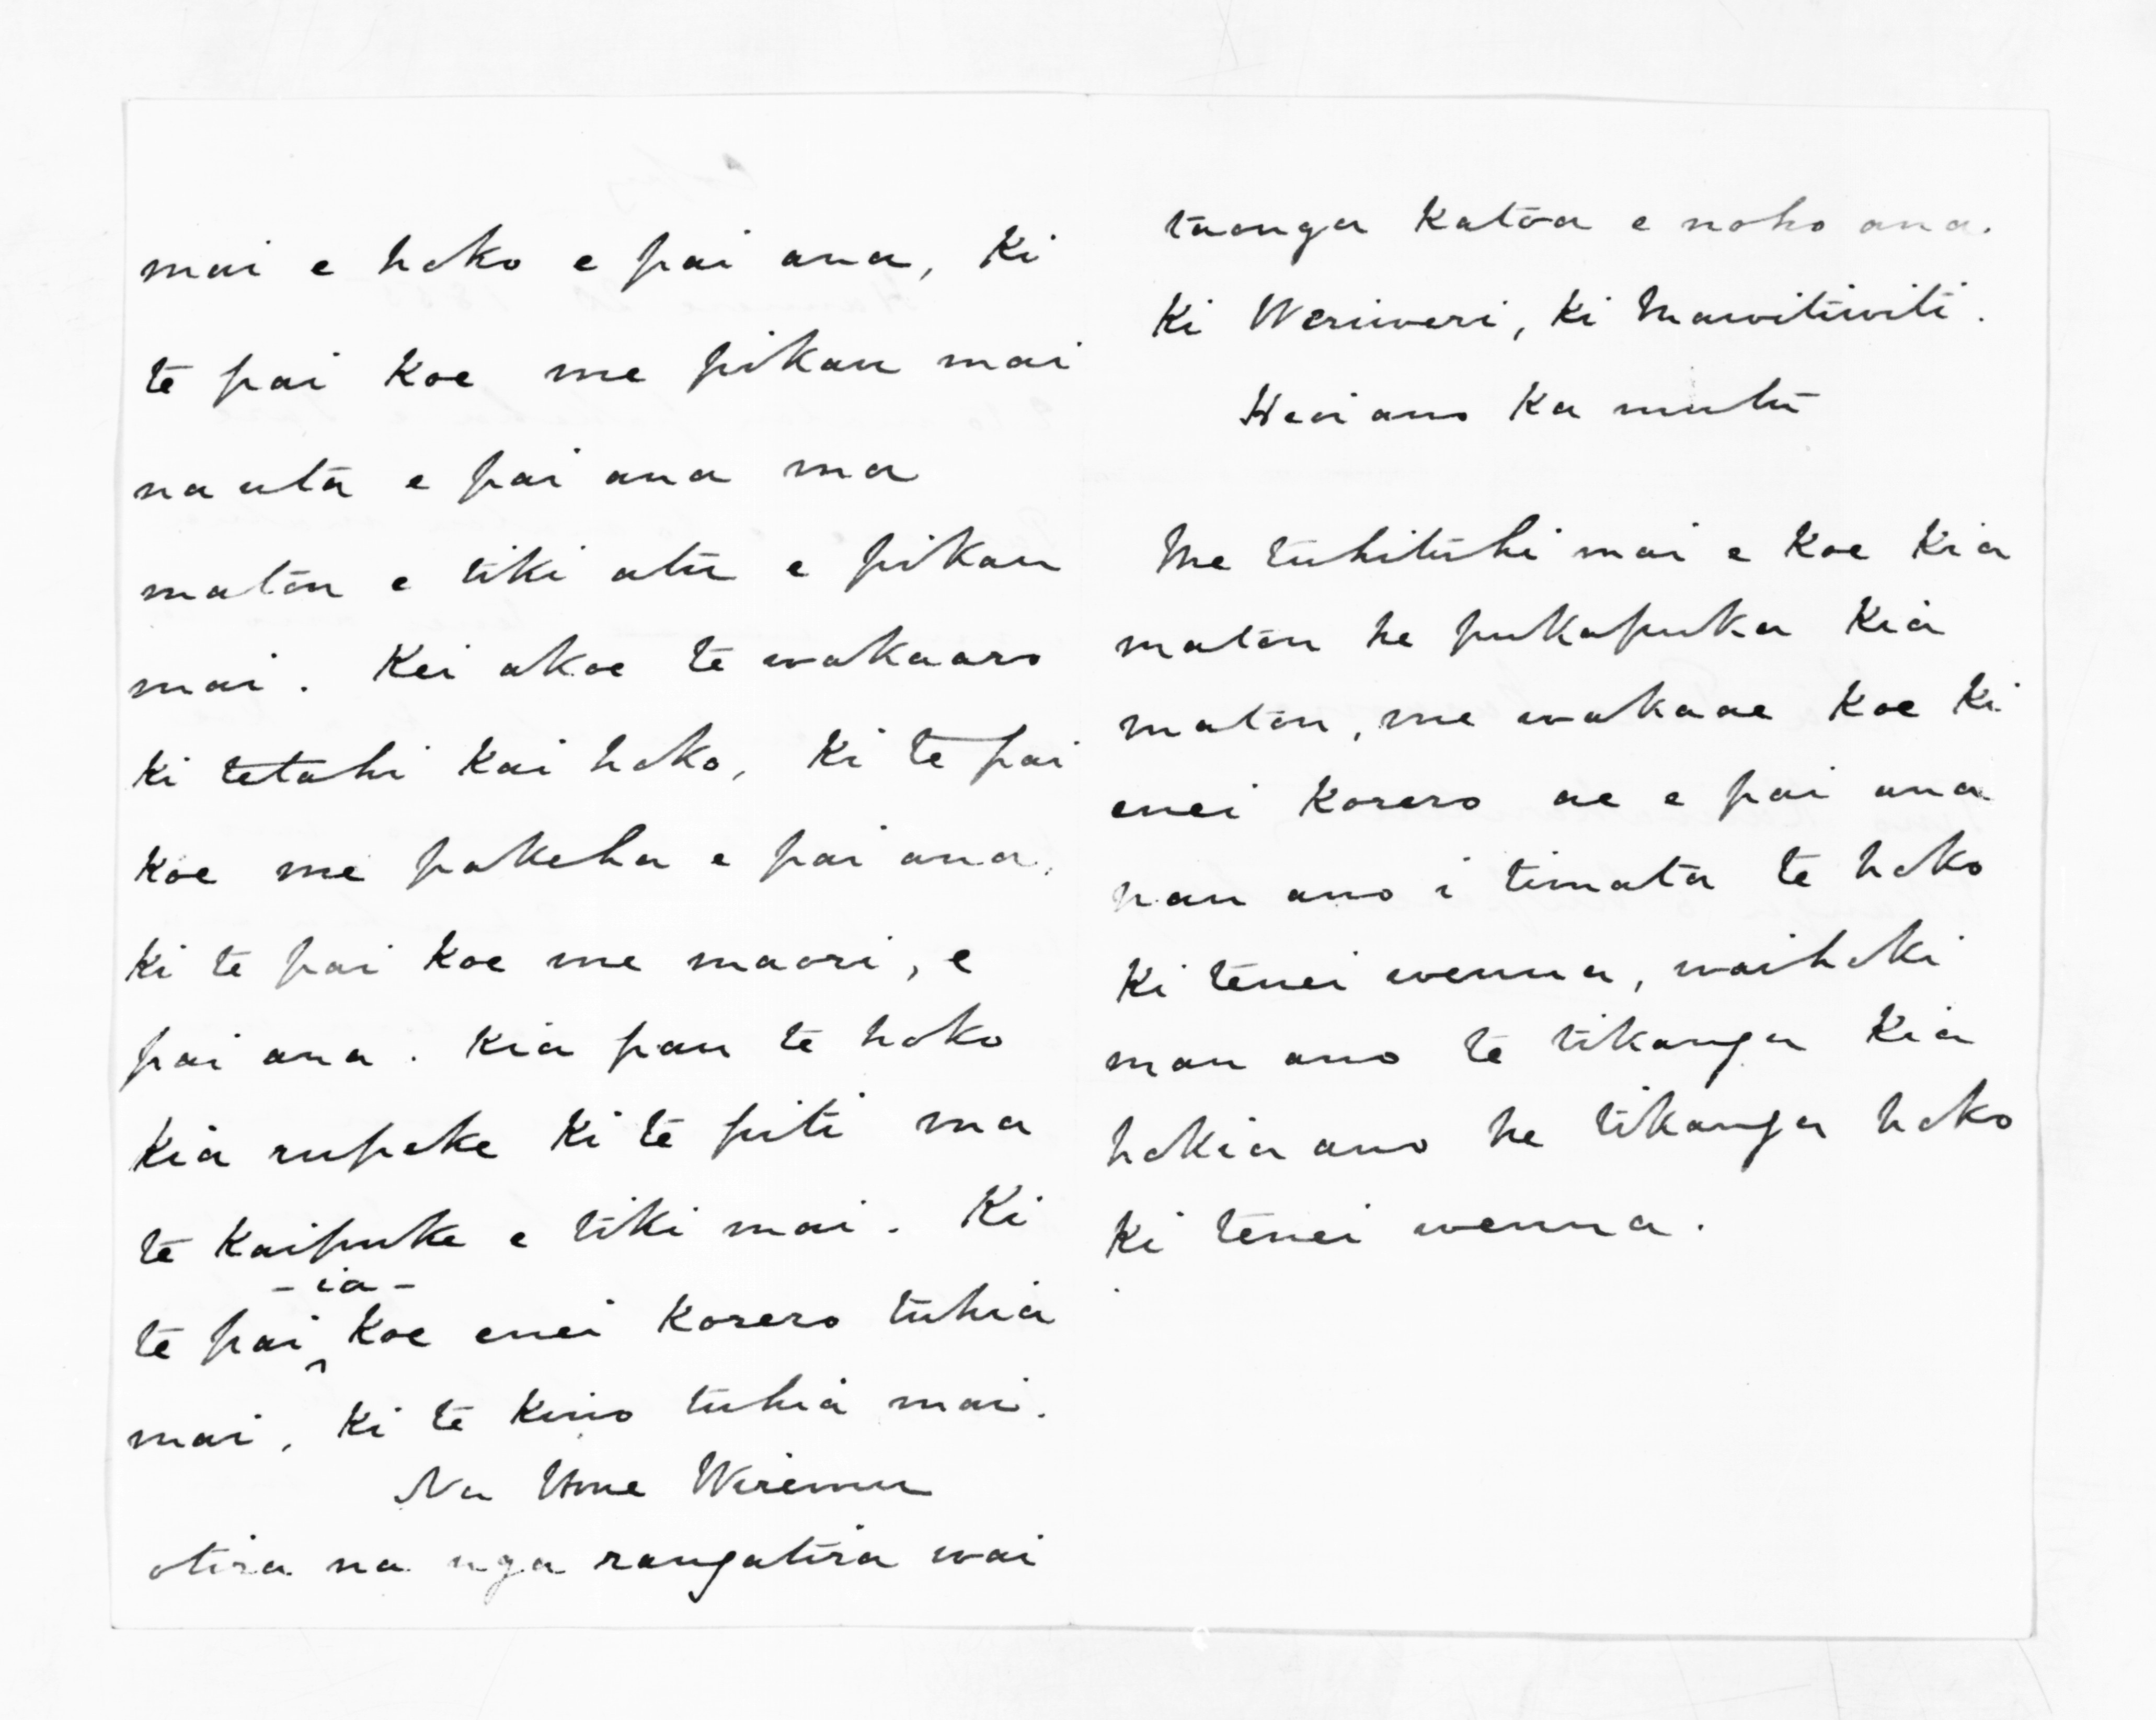 mai e hoko e pai ana, Ki
te pai koe me pikau mai
na uta e pai ana ma
matou e tiki atu e pikau
mai. Kei akoe te wakaaro
ki tetahi kai hoko, ki te pai
koe me pakeha e pai ana,
ki te pai koe me maori, e
pai ana. Kia pau te hoko
kia rupeke ki te piti ma
te kaipuke e tiki mai. Ki
-ia-
te pai ^ koe enei korero tuhia
mai, ki te kino tuhia mai.
Na Ume Wiremu
otira na nga rangatira wai
taonga katoa e noho ana.
Ki Weriweri, ki Mawitiwiti.
Heoi ano ka mutu
Me tuhituhi mai e koe kia
matou he pukapuka kia
matou, me wakaae koe ki
enei korero ae e pai ana
pau ano i timata te hoko
ki tenei wenua, waihoki
mau ano te tikanga kia
hokia ano he tikanga hoko
ki tenei wenua.